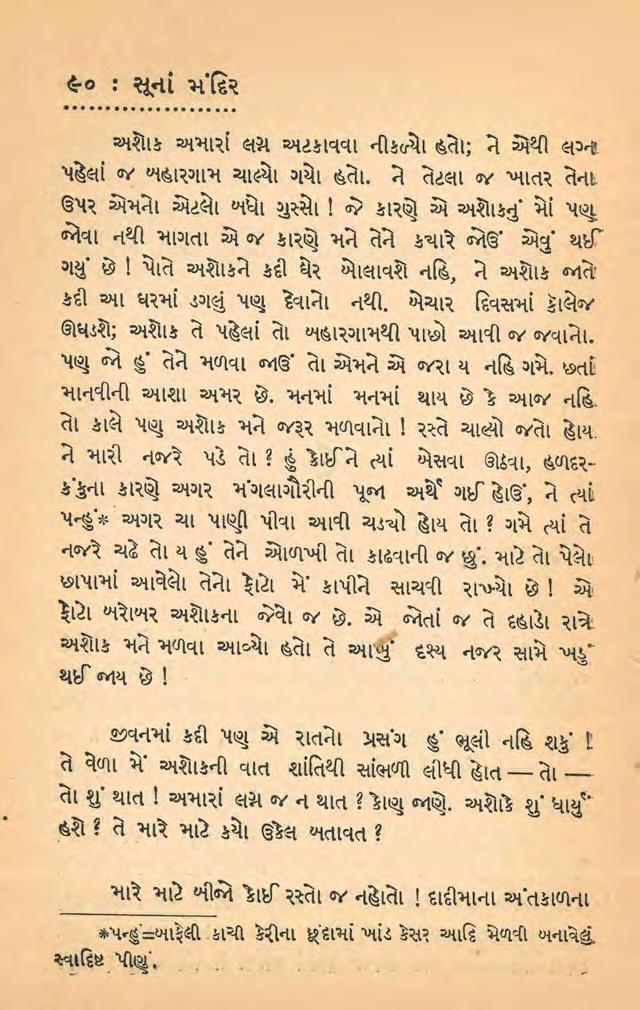 ૯૦ : સૂનાં મંદિર
અશોક અમારાં લગ્ન અટકાવવા નીકળ્યો હતો; ને એથી લગ્ન
પહેલાં જ બહારગામ ચાલ્યો ગયો હતો. ને તેટલા જ ખાતર તેના
ઉપર એમનો એટલો બધો ગુસ્સો ! જે કારણે એ અશોકનું મોં પણ
જોવા નથી માગતા એ જ કારણે મને તેને ક્યારે જોઉં એવું થઈ
ગયું છે ! પોતે અશોકને કદી ઘેર બોલાવશે નહિ, ને અશોક જાતે
કદી આ ઘરમાં ડગલું પણ દેવાનો નથી. બેચાર દિવસમાં કૉલેજ
ઊઘડશે; અશોક તે પહેલાં તો બહારગામથી પાછો આવી જ જવાનો.
પણ જો હું તેને મળવા જાઉં તો એમને એ જરા ય નહિ ગમે. છતાં
માનવીની આશા અમર છે. મનમાં મનમાં થાય છે કે આજ નહિ
તો કાલે પણ અશોક મને જરૂર મળવાનો ! રસ્તે ચાલ્યો જતો હોય
ને મારી નજરે પડે તો ? હું કોઈને ત્યાં બેસવા ઊઠવા, હળદર-
કંકુના કારણે અગર મંગલાગૌરીની પૂજા અર્થે ગઈ હોઉં, ને ત્યાં
પન્હું* અગર ચા પાણી પીવા આવી ચડ્યો હોય તો ? ગમે ત્યાં તે
નજરે ચઢે તો ય હું તેને ઓળખી તો કાઢવાની જ છું. માટે તો પેલો
છાપામાં આવેલો તેનો ફોટો મેં કાપીને સાચવી રાખ્યો છે ! એ
ફોટો બરોબર અશોકના જેવો જ છે. એ જોતાં જ તે દહાડો રાત્રે
અશોક મને મળવા આવ્યો હતો તે આખું દૃશ્ય નજર સામે ખડું
થઈ જાય છે !
જીવનમાં કદી પણ એ રાતનો પ્રસંગ હું ભૂલી નહિ શકું !
તે વેળા મેં અશોકની વાત શાંતિથી સાંભળી લીધી હોત — તો —
તો શું થાત ! અમારાં લગ્ન જ ન થાત ? કોણ જાણે. અશોકે શું ધાર્યું
હશે ? તે મારે માટે કયો ઉકેલ બતાવત ?
મારે માટે બીજો કોઈ રસ્તો જ નહોતો ! દાદીમાના અંતકાળના
*પન્હું=બાફેલી કાચી કેરીના છૂંદામાં ખાંડ કેસર આદિ મેળવી બનાવેલું
સ્વાદિષ્ટ પીણું.